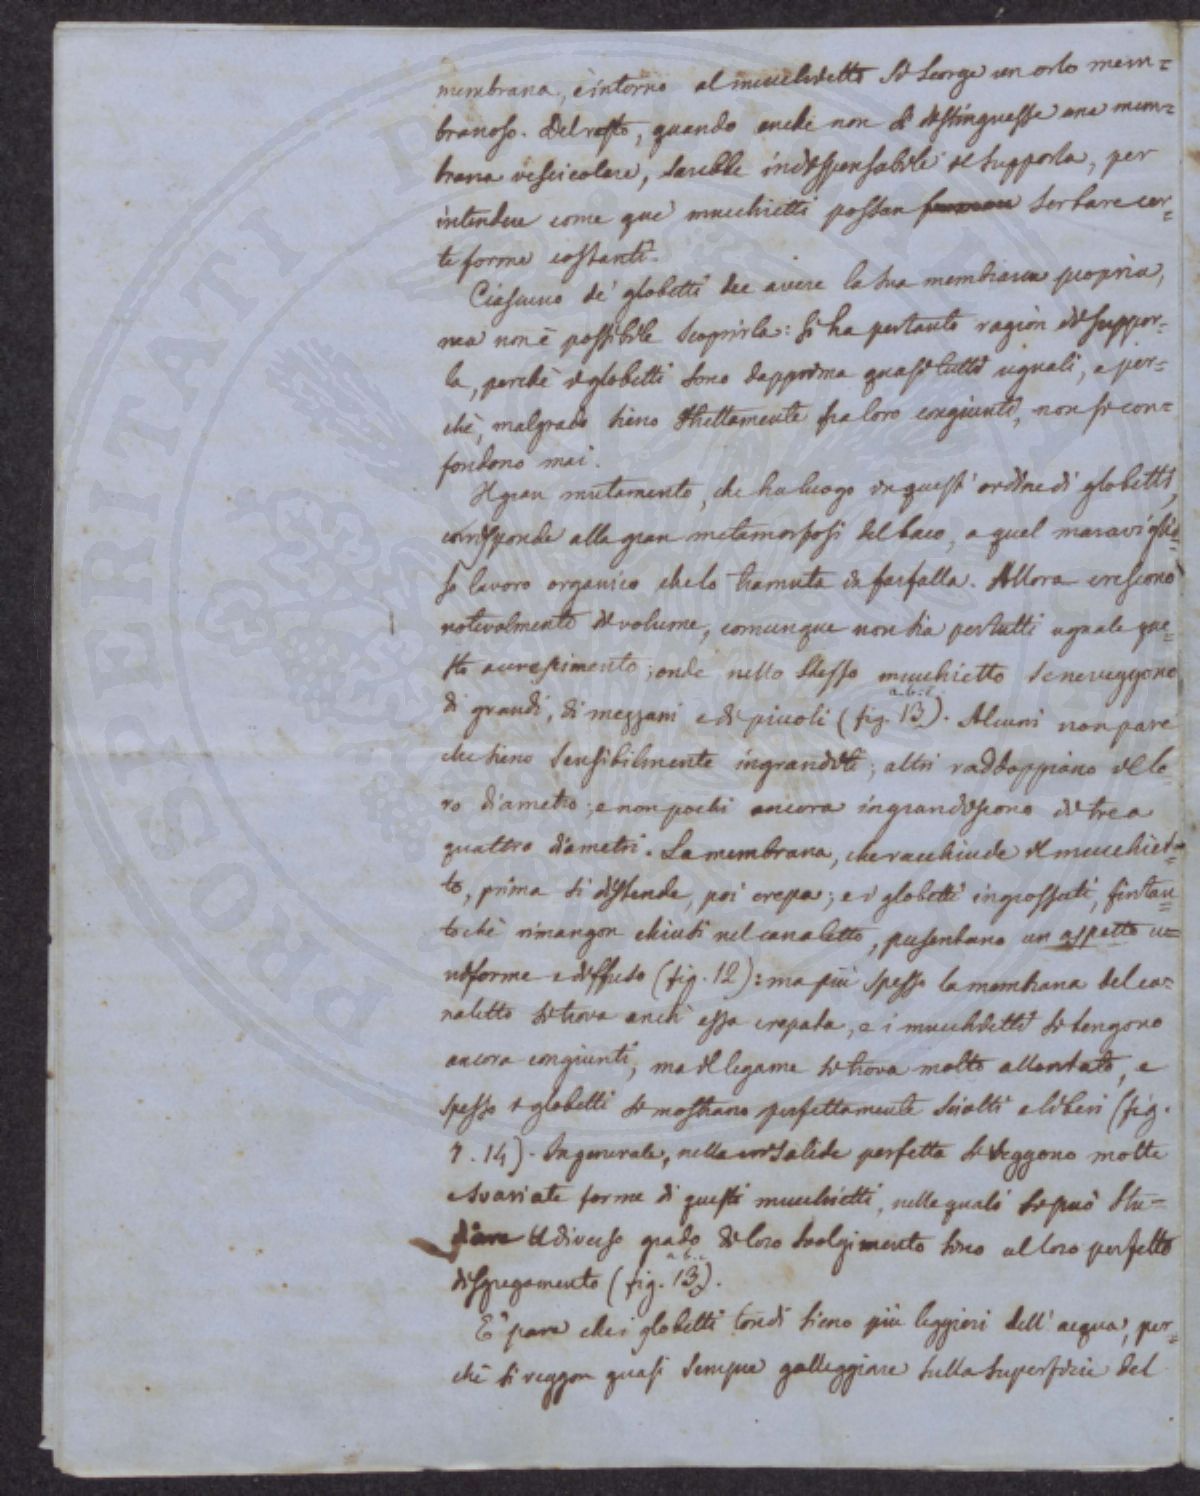 membrana, e intorno al mucchietto si scorge un orlo mem=
branoso. Del resto, quando anche non si distinguesse una mem=
brana vescicolare, sarebbe indispensabile il supporla, per
intendere come que' mucchietti possan serbare cer=
te forme costanti.
Ciascuno de' globetti dee avere la sua membrana propria,
ma non è possibile scoprirla: si ha pertanto ragion di suppor=
la, perchè i globetti sono dapprima quasi tutti uguali, e per=
chè, malgrado sieno strettamente fra loro congiunti, non si con=
fondono mai.
Il gran mutamento, che ha luogo in questi ordine di globetti,
corrisponde alla gran metamorfosi del baco, a quel maraviglio=
so lavoro organico che lo tramuta in farfalla. Allora crescono
notevolmente di volume, comunque non sia per tutti uguale que=
sto accrescimento; onde nello stesso mucchietto se ne veggono
di grandi, di mezzani e di piccoli (fig. 13. a.b.c.). Alcuni non pare
che sieno sensibilmente ingranditi; altri raddoppiano il lo=
ro diametro; e non pochi ancora ingrandiscono di tre a
quattro diametri. La membrana, che racchiude il mucchiet=
to, prima si distende, poi crepa; e i globetti ingrossati, fintan=
tochè rimangon chiusi nel canaletto, presentano un aspetto u=
niforme e diffuso (fig. 12): ma più spesso la membrana del ca=
naletto si trova anch' essa crepata, e i mucchietti si tengono
ancora congiunti, ma il legame si trova molto allentato, e
spesso i globetti si mostrano perfettamente sciolti e liberi (fig.
7. 14). In generale, nella crisalide perfetta si veggono molte
e svariate forme di questi mucchietti, nelle quali si può stu=
diare il diverso grado di loro svolgimento sino al loro perfetto
disgregamento (fig. 13. a.b.c.).
E' pare che i globetti tondi sieno più leggieri dell' acqua, per=
chè si veggon quasi sempre galleggiare sulla superficie del
PROSPERITATI PUB